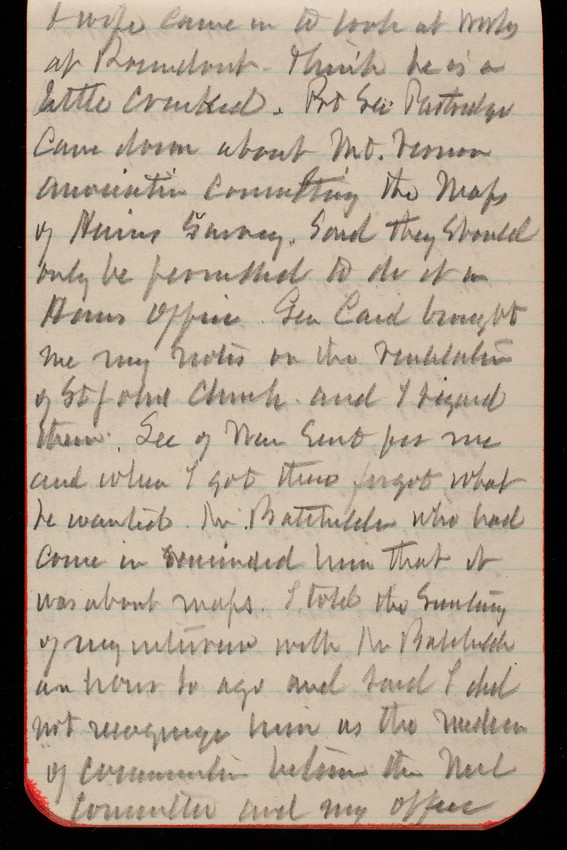 & wife came in to look at works
at Roundout. Think he is a
little cranked. Bt Gen Partridge
came down about Mt. Vernon
association consulting the maps
of Hains Survey. Said they should
only be permitted to do it in
Hains Office. Gen Card brought
me my notes on the ventilation
of St John Church and I signed
them. Sec of War sent for me
and when I got there forgot what
he wanted. Mr. Batchelder who had
come in reminded him that it
was about maps. I told the Secretary
of my interview with Mr Batchelder
an hour ago and said I did
not recognize him as the medium
of communication between the
Committee and my office